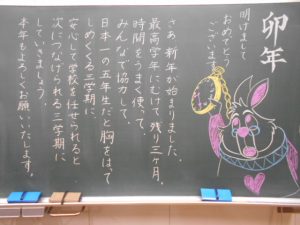 卯年
明けまして
おめでとう
ございます
さあ、新年が始まりました。
最高学年にむけて、残り三ヶ月。
時間をうまく使って、
みんなで協力して、
日本一の五年生だと胸をはって
しめくくる三学期に
安心して学校を任せられると
次につなげられる三学期に
していきましょう。
本年もよろしくお願いいたします。